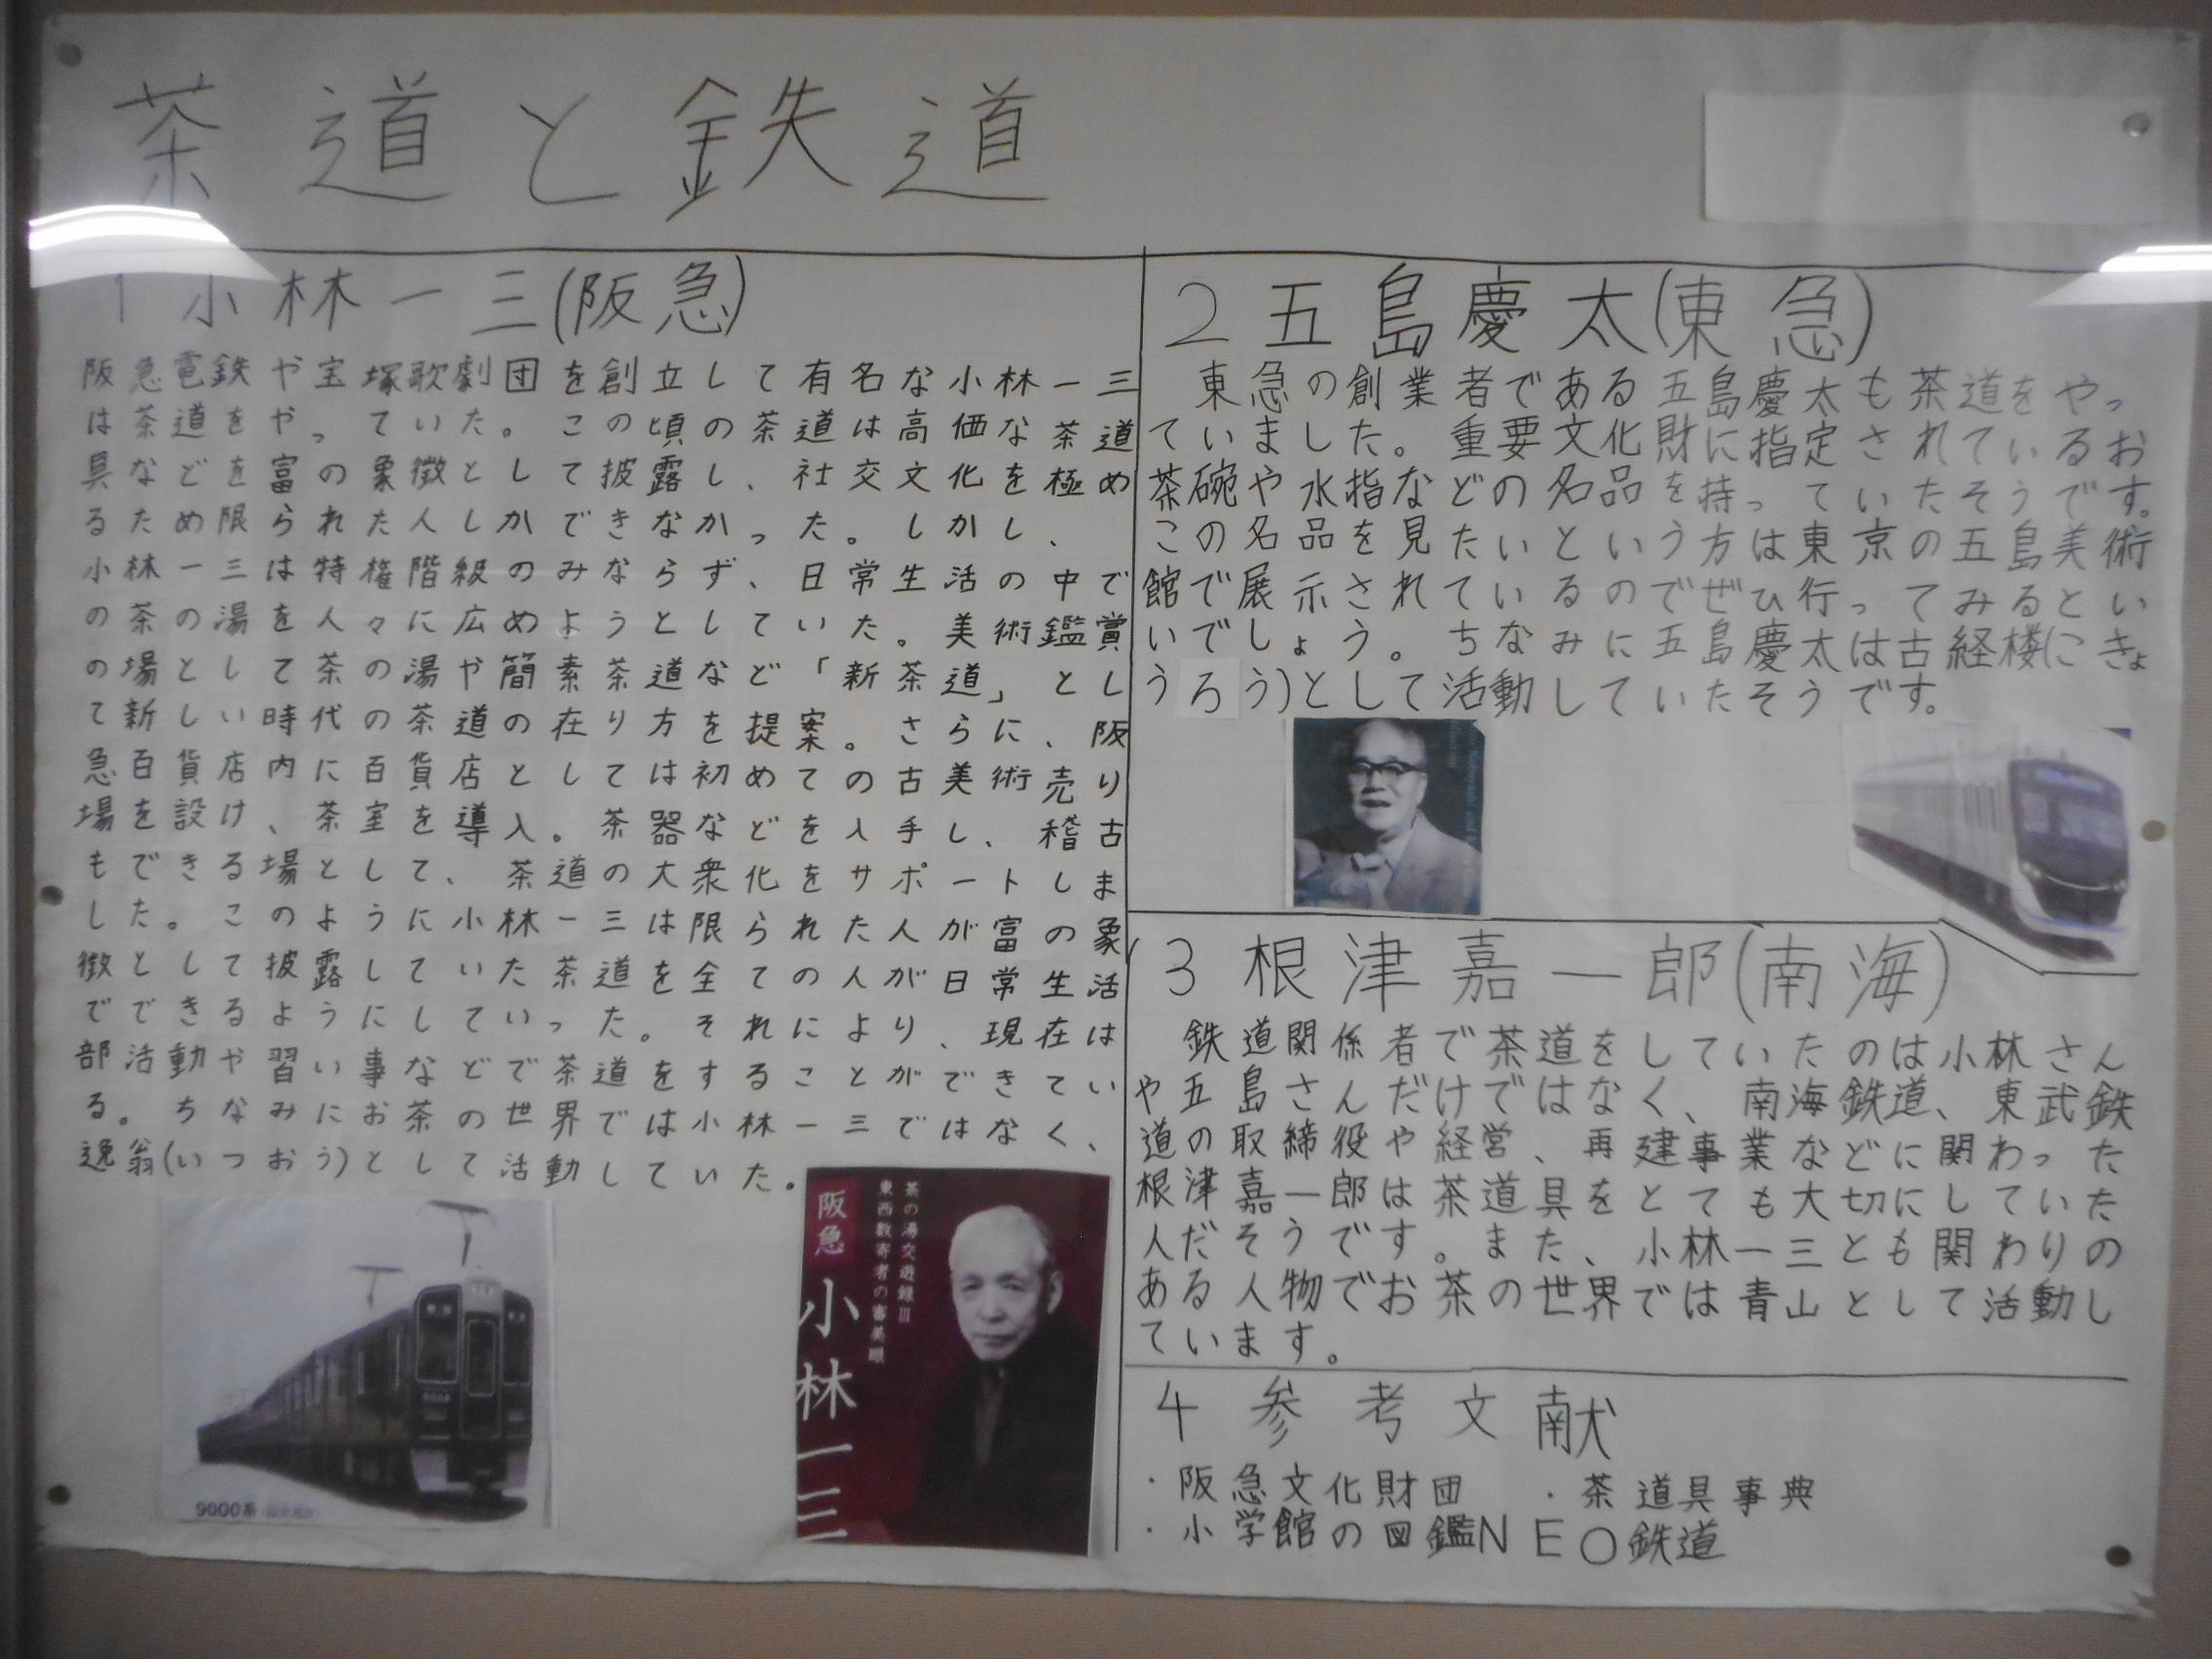 茶道と鉄道
1 小林一三(阪急)
阪急電鉄や宝塚歌劇団を創立して有名な小林一三
は茶道をやっていた。この頃の茶道は高価な茶道
具などを富の象徴として披露し、社交文化を極め
るため限られた人しかできなかった。しかし、
小林一三は特権階級のみならず、日常生活の中で
の茶の湯を人々に広めようとしていた。美術鑑賞
の場として茶の湯や簡素茶道など「新茶道」とし
て新しい時代の茶道の在り方を提案。さらに、阪
急百貨店内に百貨店としては初めての古美術売り
場を設け、茶室を導入。茶器などを入手し、稽古
もできる場として、茶道の大衆化をサポートしま
した。このように小林一三は限られた人が富の象
徴として披露していた茶道を全ての人が日常生活
でできるようにしていった。それにより、現在は
部活動や習い事などで茶道をすることができてい
る。ちなみにお茶の世界では小林一三ではなく、
逸翁(いつおう)として活動していた。
9000系
茶の湯交遊録III
東西数寄者の審美眼
阪急
小林一三
2 五島慶太(東急)
東急の創業者である五島慶太も茶道をやっ
ていました。重要文化財に指定されているお
茶碗や水指などの名品を持っていたそうです。
この名品を見たいという方は東京の五島美術
館で展示されているのでぜひ行ってみるとい
いでしょう。ちなみに五島慶太は古経楼(こきょ
うろう)として活動していたそうです。
3 根津嘉一郎(南海)
鉄道関係者で茶道をしていたのは小林さん
や五島さんだけではなく、南海鉄道、東武鉄
道の取締役や経営、再建事業などに関わった
根津嘉一郎は茶道具をとても大切にしていた
人だそうです。また、小林一三とも関わりの
ある人物でお茶の世界では青山として活動し
ています。
4 参考文献
・阪急文化財団 ・茶道具事典
・小学館の図鑑NEO鉄道